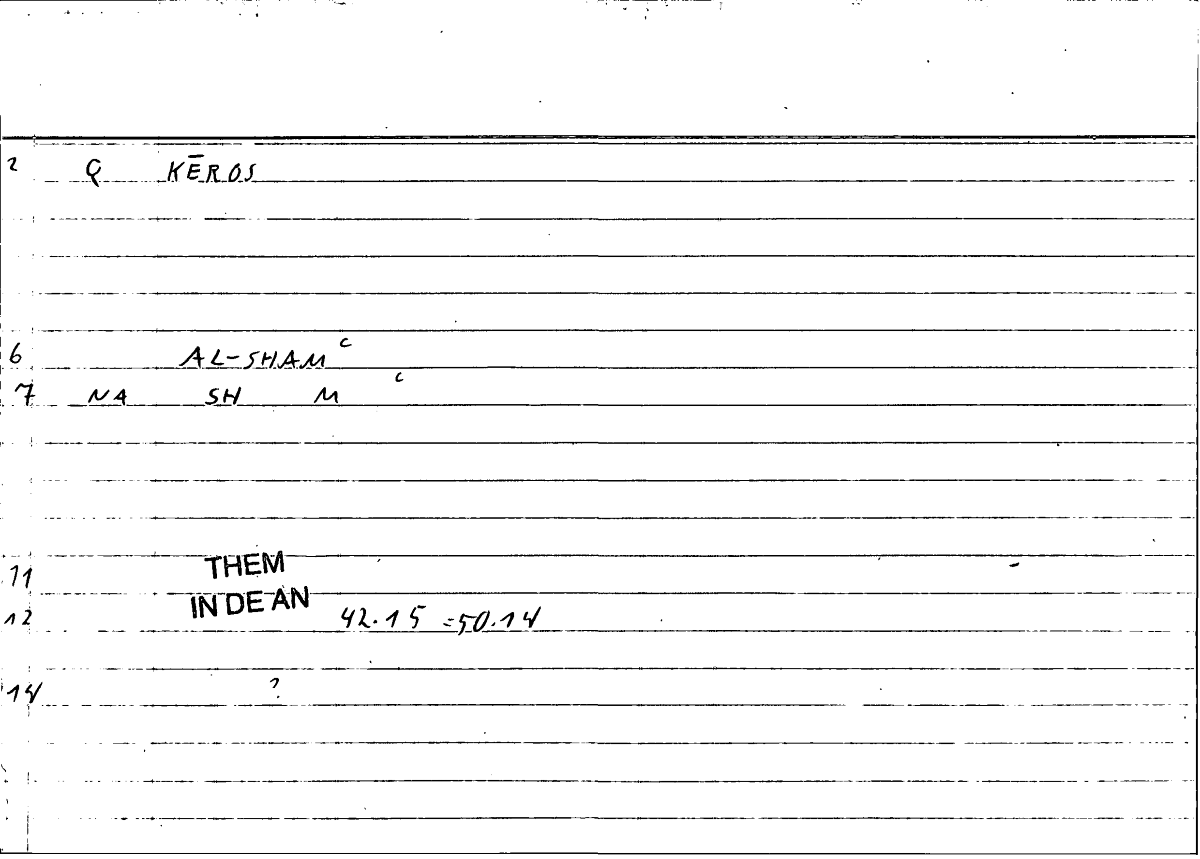 2 Q KĒROS
6 AL-SHAMᶜ
7 NA SH Mᶜ
11 THEM
12 IN DE AN 42.15 =50.14
14 ?